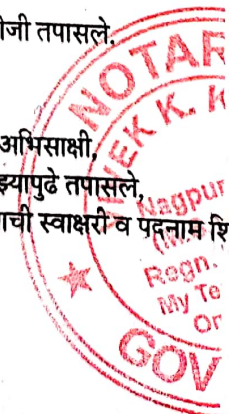 जी तपासले.
अभिसाक्षी,
झ्यापुढे तपासले,
ाची स्वाक्षरी व पदनाम शि
NOTAR
VIVEK K. K
Nagpur
Regn.
My Te
GOV